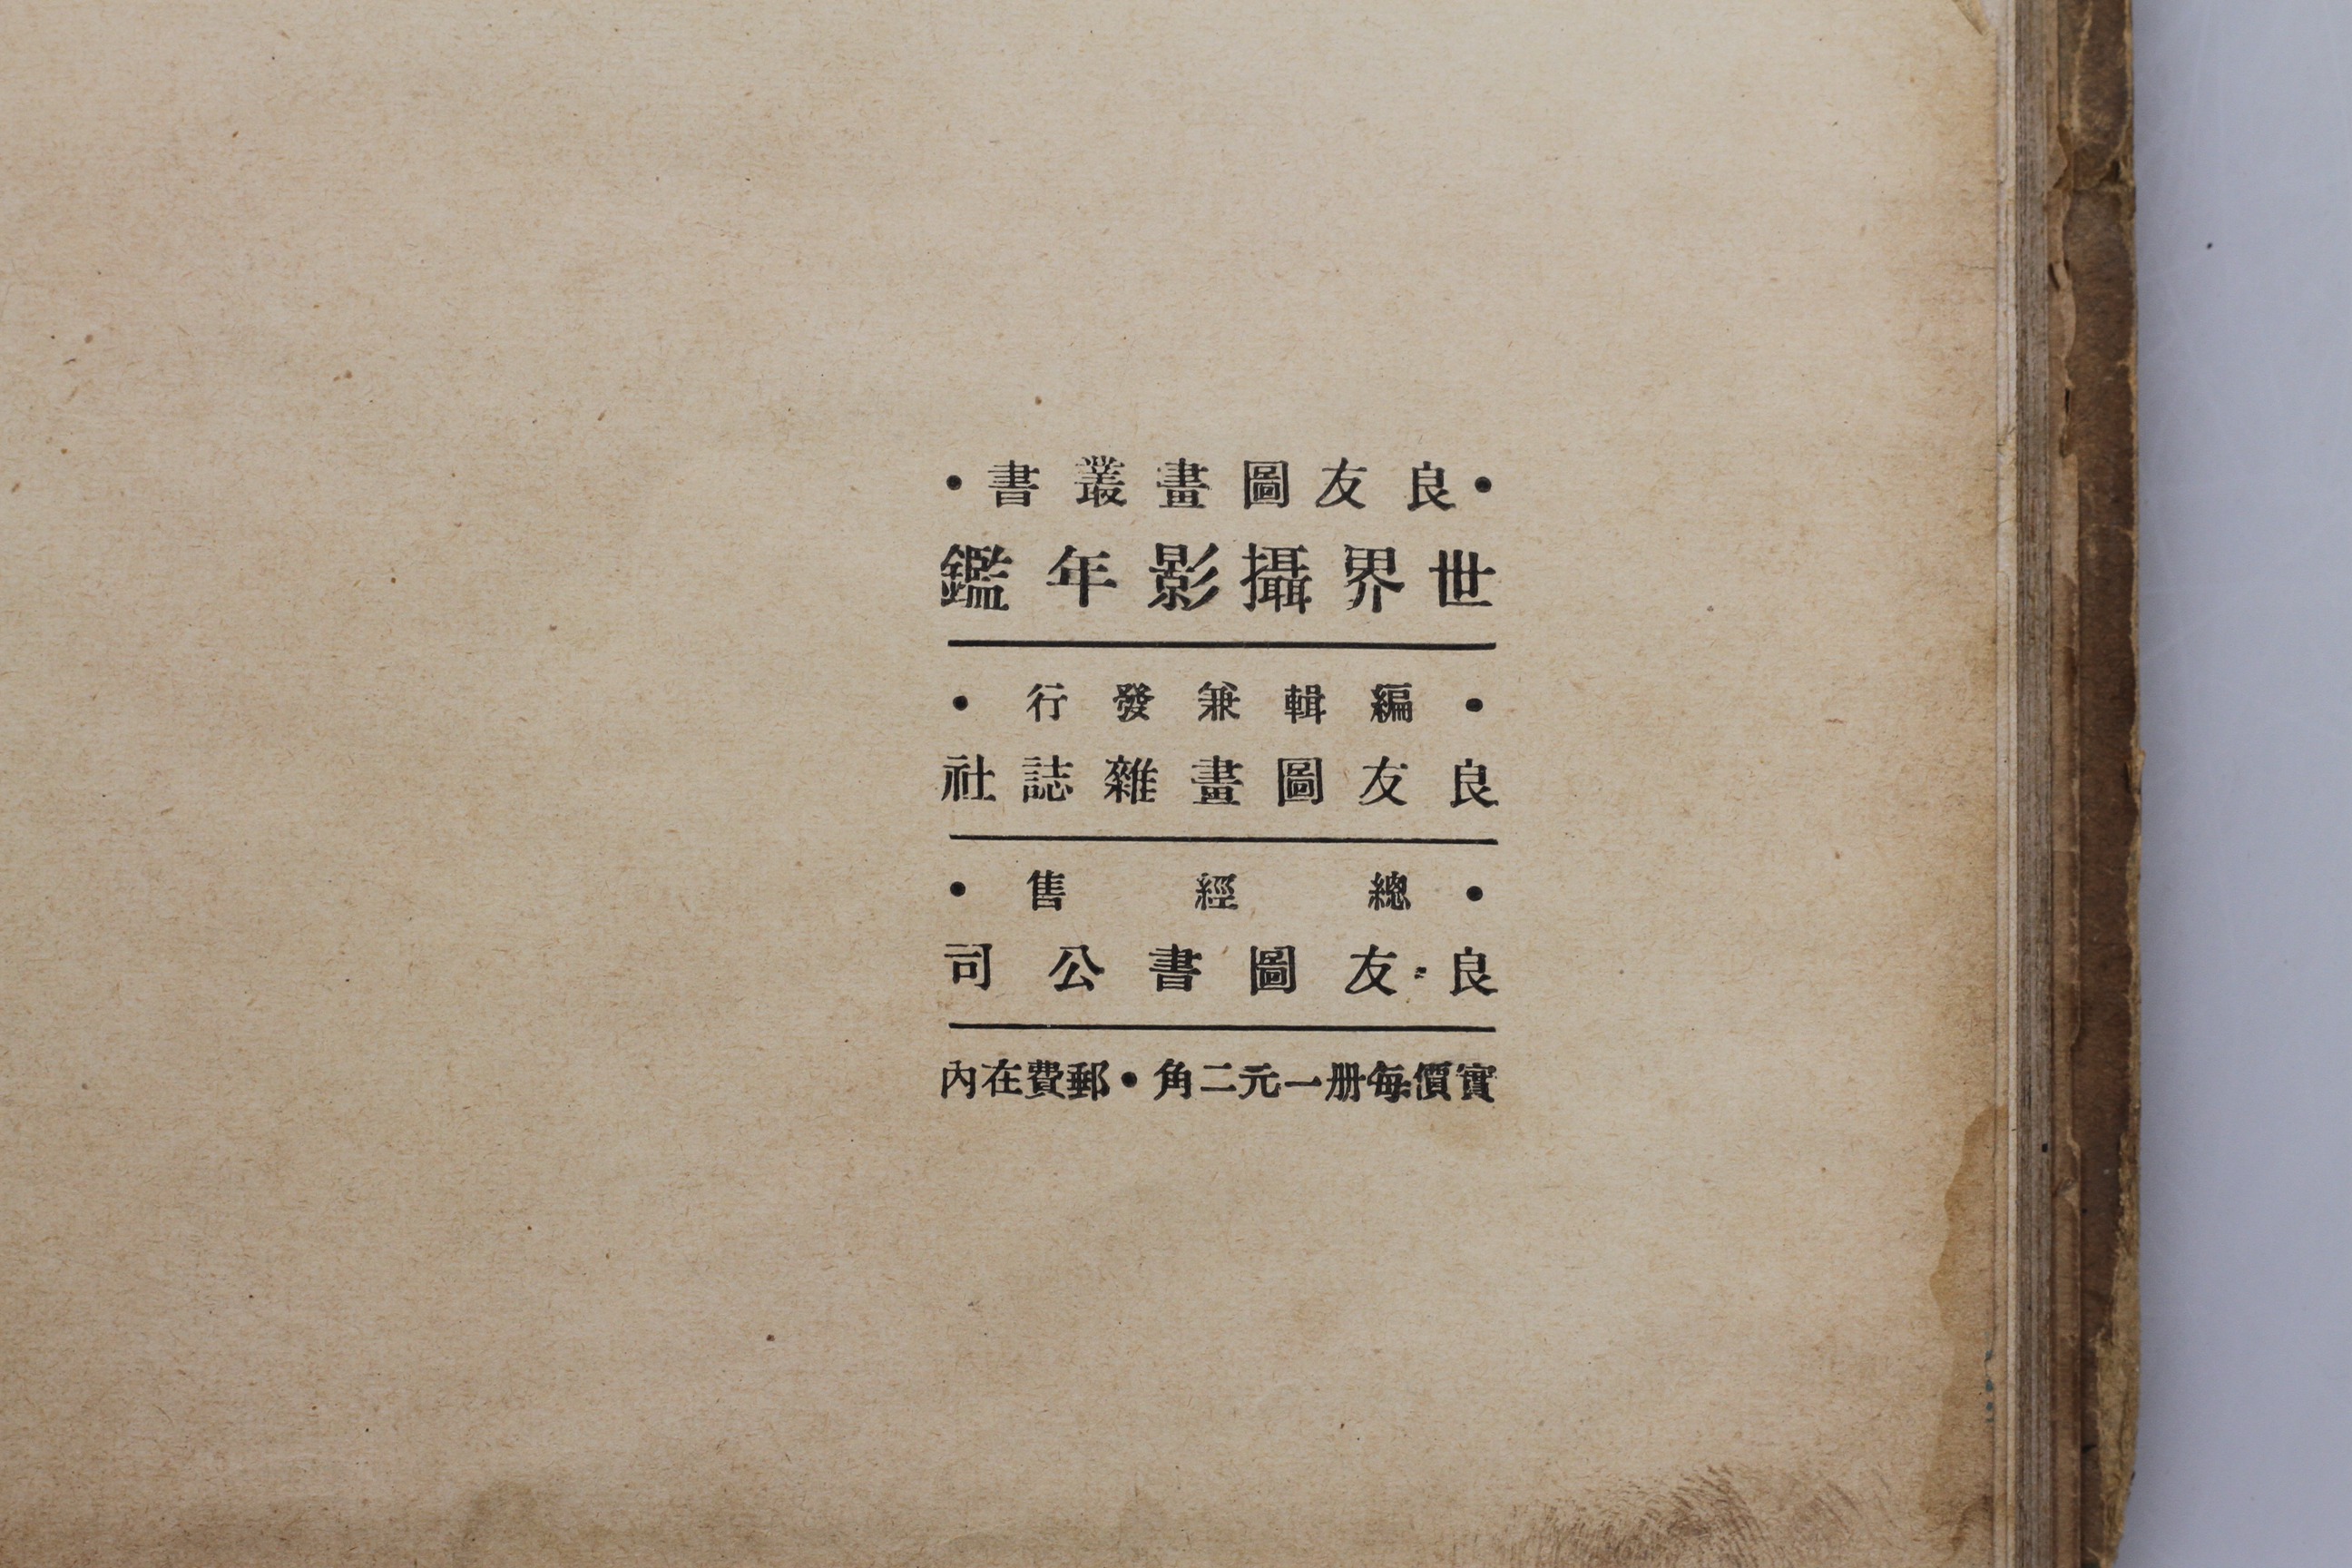 •良友圖畫叢書•
世界攝影年鑑
•編輯兼發行•
良友圖畫雜誌社
•總經售•
良友圖書公司
實價每册一元二角•郵費在內